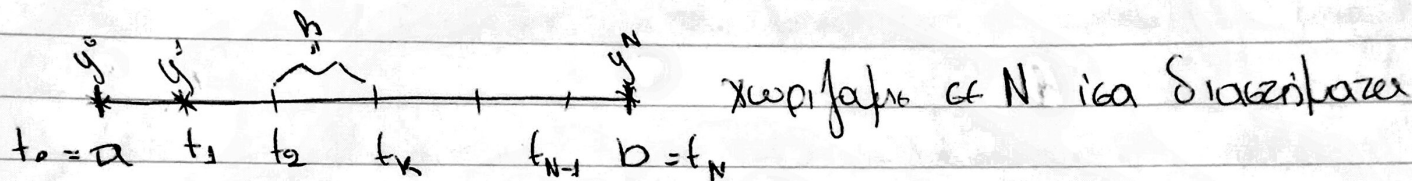 h
y⁰ y¹ y^N
χωρίζαμε σε N ίσα διαστήματα
t₀ = a t₁ t₂ t_κ t_{N-1} b = t_N